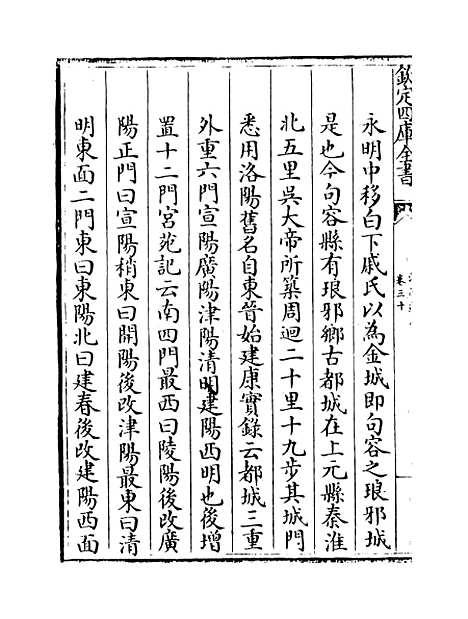 欽定四庫全書
卷三十
永明中移白下戚氏以為金城即句容之琅邪城
是也今句容縣有琅邪鄉古都城在上元縣秦淮
北五里吳大帝所築周迴二十里十九步其城門
悉用洛陽舊名自東晉始建康實錄云都城三重
外重六門宣陽廣陽津陽清明建陽西明也後增
置十二門宮苑記云南四門最西曰陵陽後改廣
陽正門曰宣陽稍東曰開陽後改津陽最東曰清
明東面二門東曰東陽北曰建春後改建陽西面